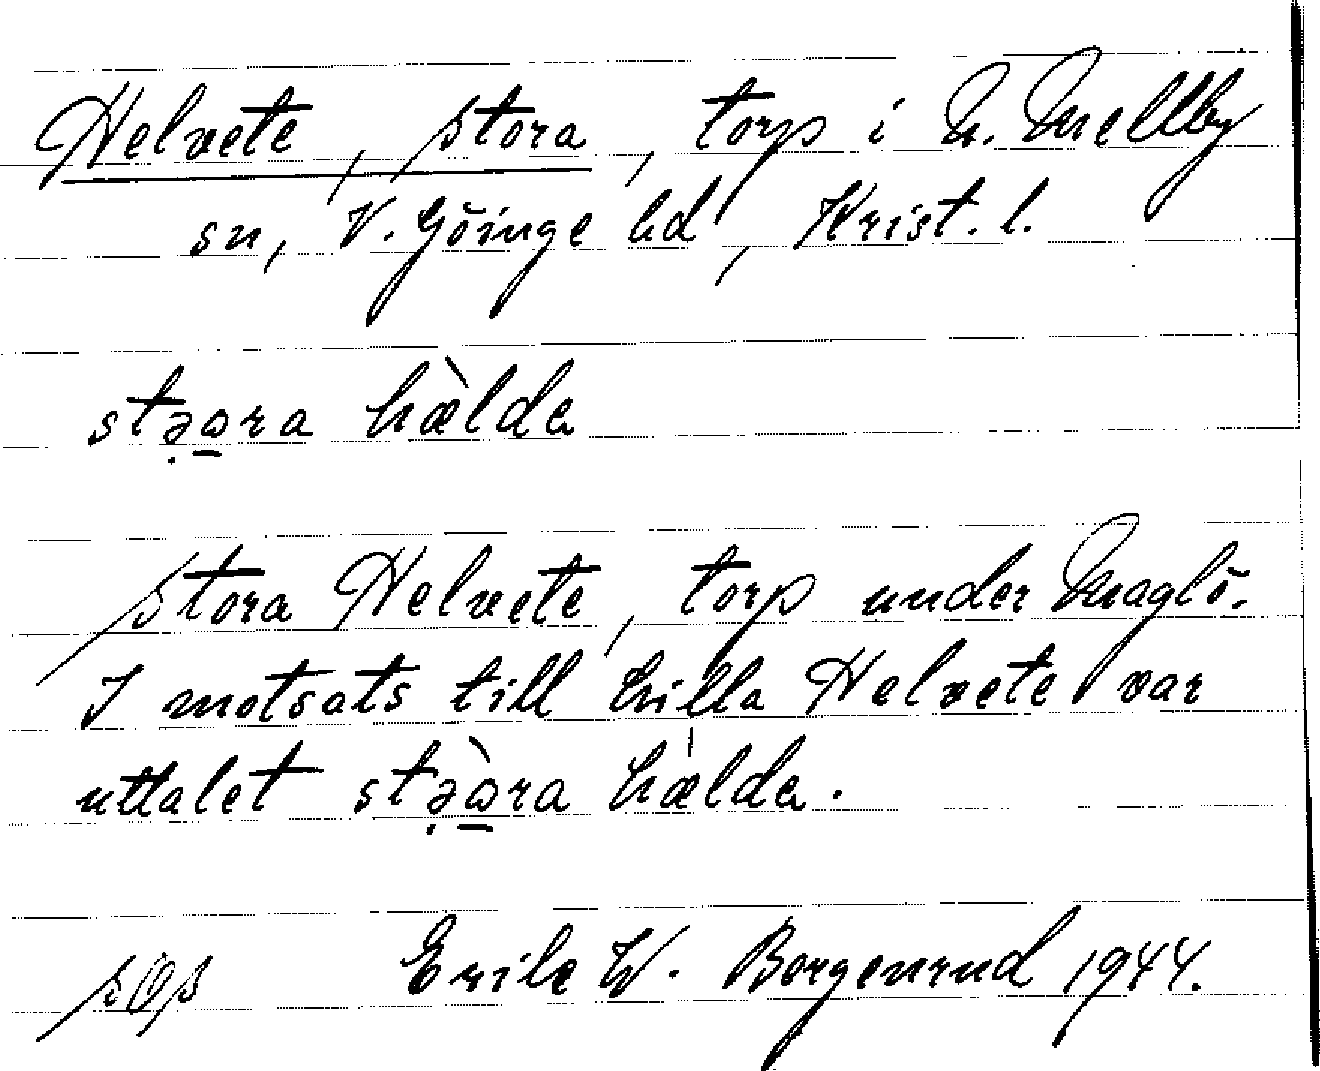 Helvete, stora, torp i N. Mellby
sn, V. Göinge hd, Krist. l.
stə̣o̱ra hæ̀lde
Stora Helvete, torp under Maglö.
I motsats till Lilla Helvete var
uttalet stə̣ò̱ra hælde.
Erik W. Borgenrud 1944.